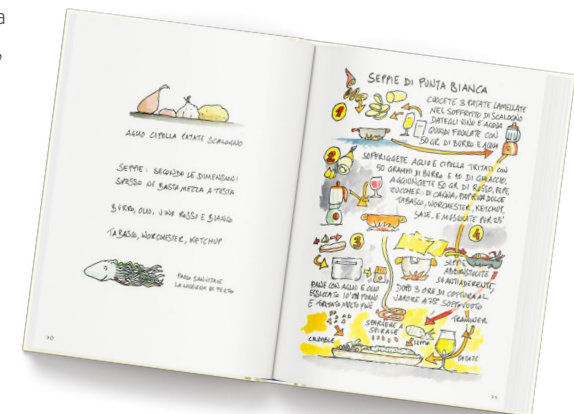 a
AGLIO CIPOLLA PATATE SCALOGNO
SEPPIE: SECONDO LE DIMENSIONI
SPESSO NE BASTA MEZZA A TESTA
BURRO, OLIO, VINO ROSSO E BIANCO
TABASCO, WORCHESTER, KETCHUP
LA LOCANDA DI
70
SEPPIE DI PUNTA BIANCA
1
CUOCETE 3 PATATE LAMELLATE
NEL SOFFRITTO DI SCALOGNO
DATEGLI VINO E ACQUA
QUINDI FRULLATE CON
50 GR DI BURRO E ACQUA
2
SOFFRIGGETE AGLIO E CIPOLLA TRITATI CON
50 GRAMMI DI BURRO E 10 DI
AGGIUNGETE 50 GR DI ROSSO, PEPE,
ZUCCHERO DI CANNA, PAPRIKA DOLCE
TABASCO, WORCHESTER, KETCHUP,
SALE, E MISCELATE PER 25'
3
4
SEPPIE
ABBRUSTOLITE
IN ANTIADERENTE,
PANE CON AGLIO E OLIO
ESSICCATO 10' IN FORNO
E TRITATO MOLTO FINE
DOPO 3 ORE DI COTTURA AL
VAPORE A 75° SOTTOVUOTO
CRUMBLE
SPIRALE
SEPPIA
PATATE
71